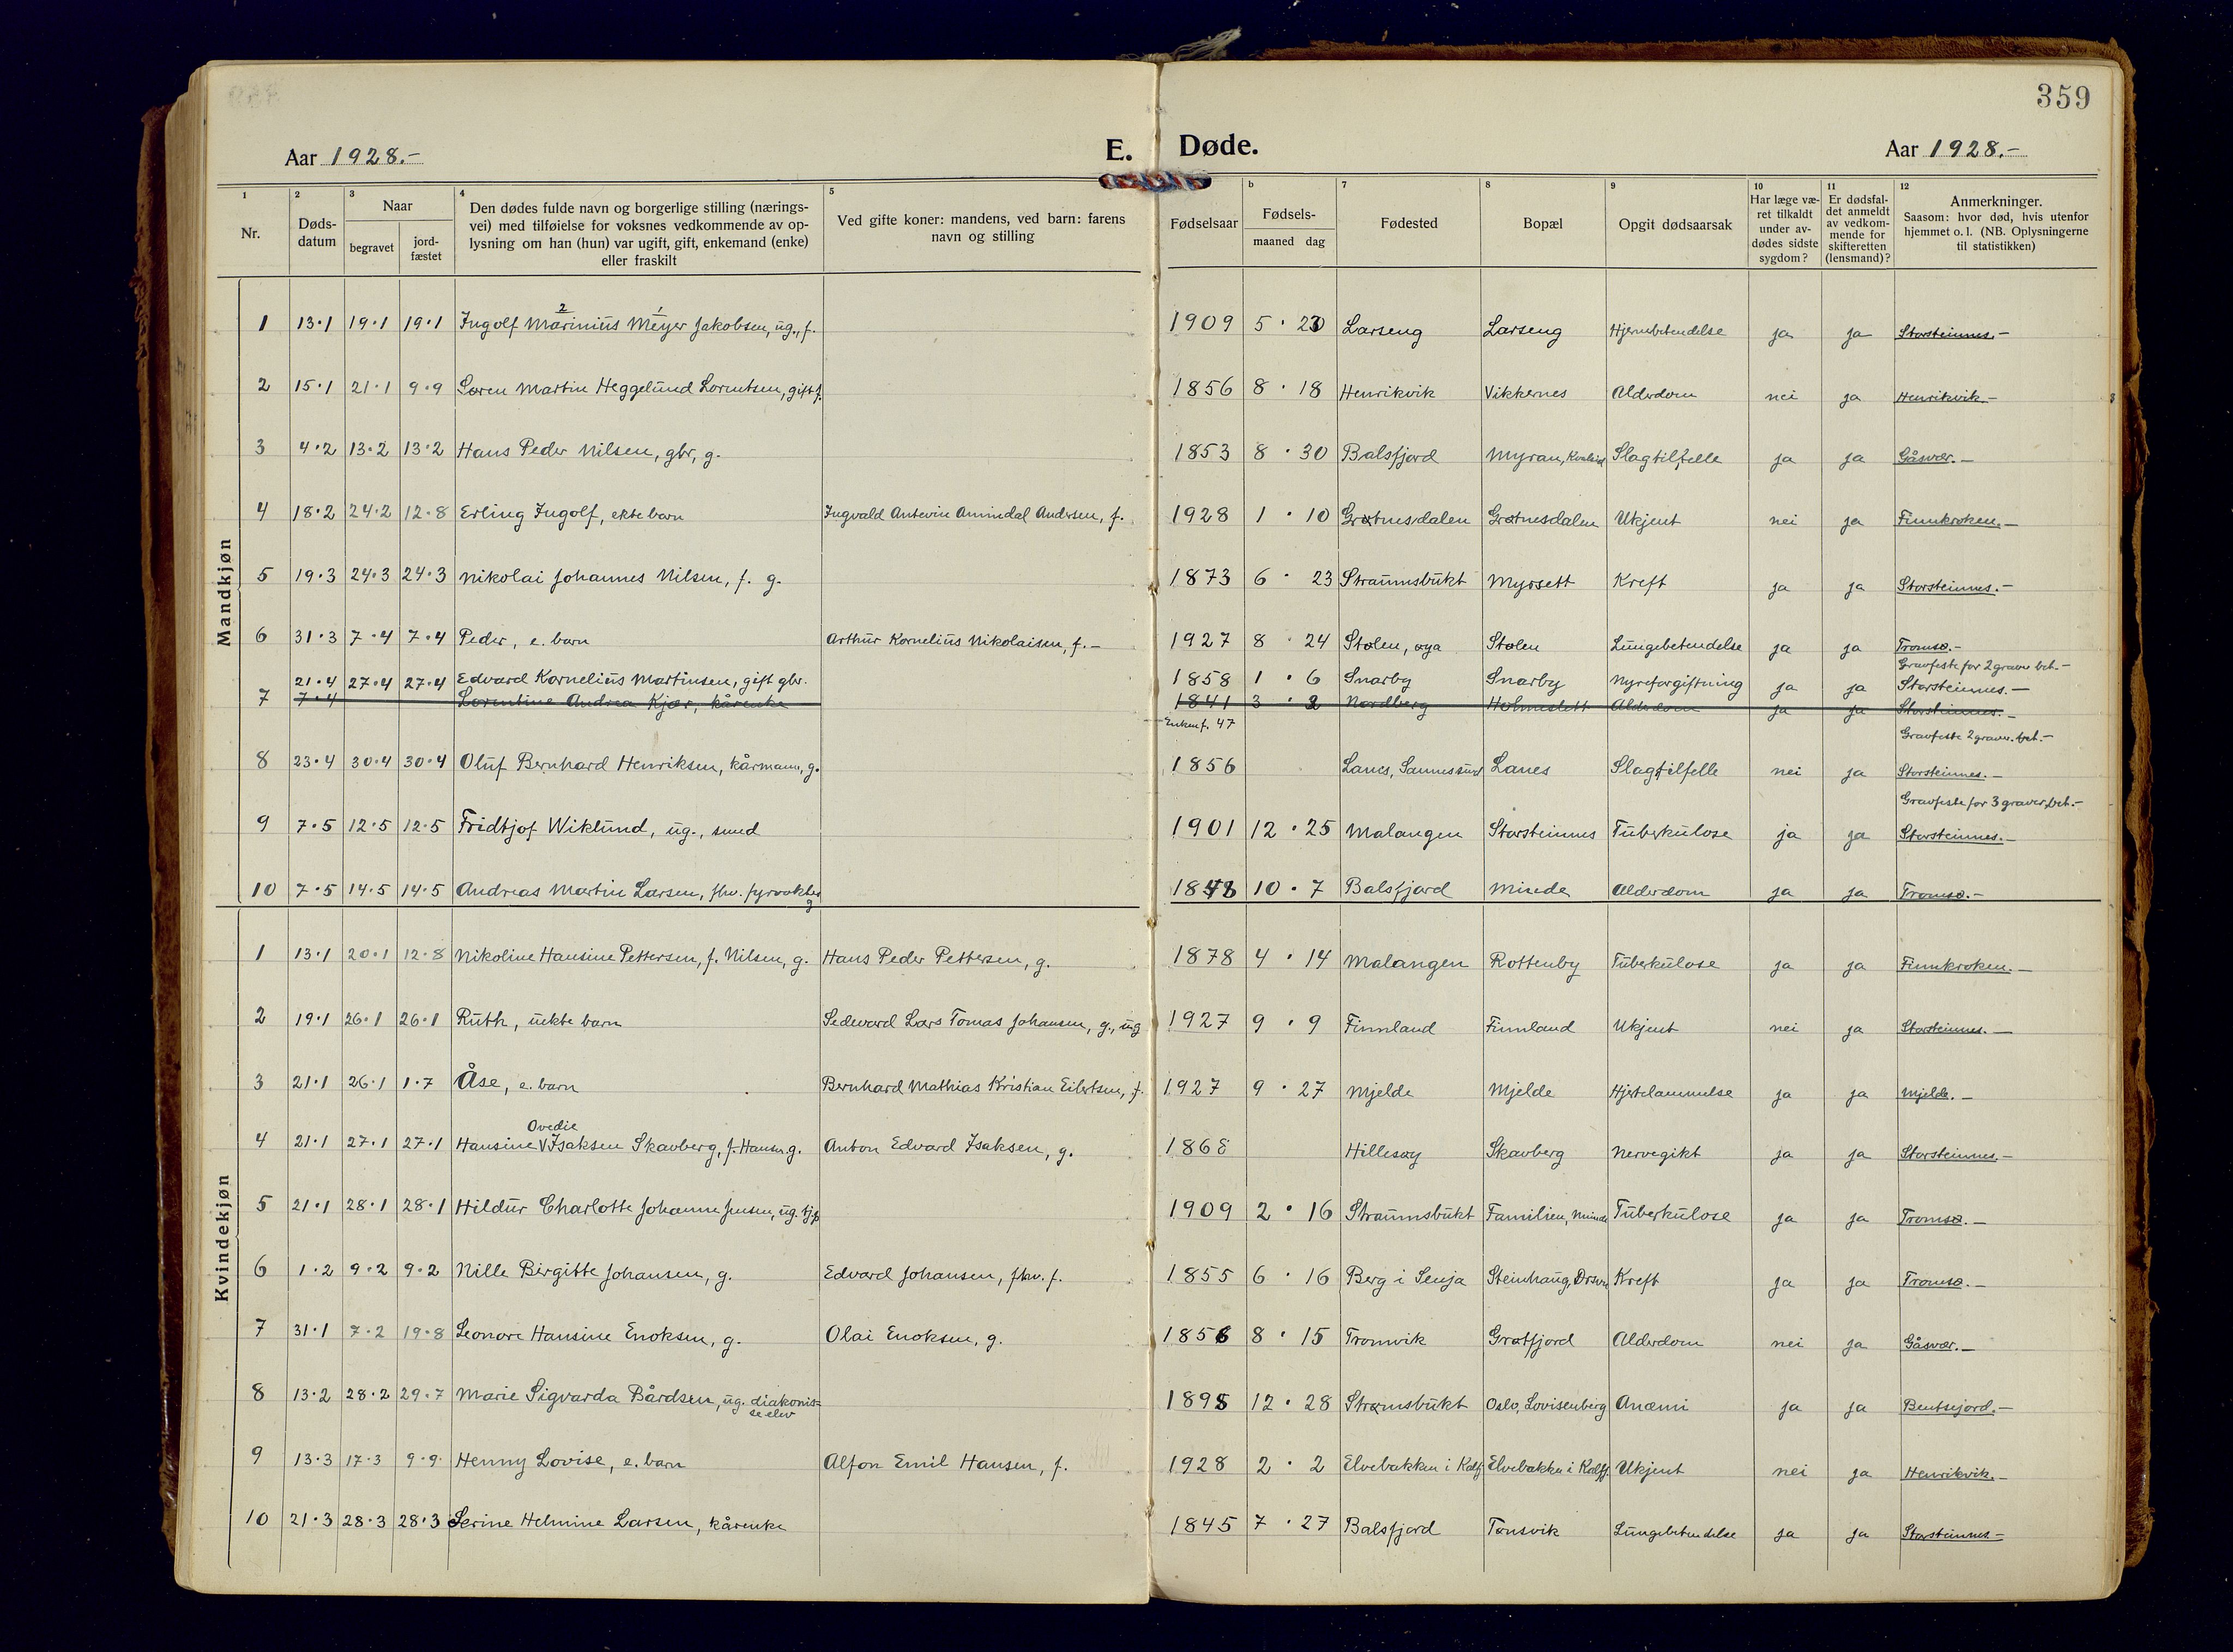 359
Aar 1928.-
E. Døde.
Aar 1928.-
1 2 3 4 5 b 7 8 9 10 11 12
Nr.
Døds-
datum
Naar
begravet
jord-
fæstet
Den dødes fulde navn og borgerlige stilling (nærings-
vei) med tilføielse for voksnes vedkommende av op-
lysning om han (hun) var ugift, gift, enkemand (enke)
eller fraskilt
Ved gifte koner: mandens, ved barn: farens
navn og stilling
Fødselsaar
Fødsels-
maaned dag
Fødested
Bopæl
Opgit dødsaarsak
Har læge væ-
ret tilkaldt
under av-
dødes sidste
sygdom?
Er dødsfal-
det anmeldt
av vedkom-
mende for
skifteretten
(lensmand)?
Anmerkninger.
Saasom: hvor død, hvis utenfor
hjemmet o. l. (NB. Oplysningerne
til statistikken)
Mandkjøn
2 1
1 13·1 19·1 19·1 Ingolf Marinius Meyer Jakobsen, ug., f. 1909 5 · 23 Larseng Larseng Hjernebetendelse ja ja Storsteinnes.-
2 15·1 21·1 9·9 Søren Martin Heggelund Lorentsen, gift f. 1856 8 · 18 Henrikvik Vikkernes Alderdom nei ja Henrikvik.-
3 4·2 13·2 13·2 Hans Peder Nilsen, gbr, g. 1853 8 · 30 Balsfjord Myran, Slagtilfelle ja ja Gåsvær.-
4 18·2 24·2 12·8 Erling Ingolf, ekte barn Ingvald Antevin Amindal Andersen, f. 1928 1 · 10 Grøtnesdalen Grøtnesdalen Ukjent nei ja Finnkroken.-
5 19·3 24·3 24·3 Nikolai Johannes Nilsen, f. g. 1873 6 · 23 Straumsbukt Myrsett Kreft ja ja Storsteinnes.-
6 31·3 7·4 7·4 Peder, e. barn Arthur Kornelius Nikolaisen, f.- 1927 8 · 24 Stølen, øya Stølen Lungebetendelse ja ja Tromsø.-
Gravfeste for 2 graver bet.-
21·4 27·4 27·4 Edvard Kornelius Martinsen, gift gbr. 1858 1 · 6 Snarby Snarby Nyreforgiftning ja ja Storsteinnes.-
7 7·4 Lorentine Andrea Kjær, kårenke 1841 3 · 2 Nordberg Holmeslett Alderdom ja ja Storsteinnes.-
Enken f. 47
Gravfeste 2 graver. bet.-
8 23·4 30·4 30·4 Oluf Bernhard Henriksen, kårmann, g. 1856 Lanes, Sannessund Lanes Slagtilfelle nei ja Storsteinnes.-
Gravfeste for 3 graver, bet.-
9 7·5 12·5 12·5 Fridtjof Wiklund, ug., smed 1901 12 · 25 Malangen Storsteinnes Tuberkulose ja ja Storsteinnes.-
10 7·5 14·5 14·5 Andreas Martin Larsen, fhv. fyrvokter 1848 10 · 7 Balsfjord Minde Alderdom ja ja Tromsø.-
g
Kvindekjøn
1 13·1 20·1 12·8 Nikoline Hansine Pettersen, f. Nilsen, g. Hans Peder Pettersen, g. 1878 4 · 14 Malangen Rottenby Tuberkulose ja ja Finnkroken.-
2 19·1 26·1 26·1 Ruth, uekte barn Sedevard Lars Tomas Johansen, g., ug 1927 9 · 9 Finnland Finnland Ukjent nei ja Storsteinnes.-
3 21·1 26·1 1·7 Åse, e. barn Bernhard Mathias Kristian Eilertsen, f. 1927 9 · 27 Mjelde Mjelde Hjertelammelse ja ja Mjelde.-
Ovedie
4 21·1 27·1 27·1 Hansine V Isaksen Skavberg, f. Hansen g. Anton Edvard Isaksen, g. 1868 Hillesøy Skavberg Nervegikt ja ja Storsteinnes.-
5 21·1 28·1 28·1 Hildur Charlotte Johanne Jensen, ug. tjp 1909 2 · 16 Straumsbukt Familien, Minde Tuberkulose ja ja Tromsø.-
6 1·2 9·2 9·2 Nille Birgitte Johansen, g. Edvard Johansen, fhv. f. 1855 6 · 16 Berg i Senja Steinhaug, Kreft ja ja Tromsø.-
7 31·1 7·2 19·8 Leonore Hansine Enoksen, g. Olai Enoksen, g. 1856 8 · 15 Tromvik Grøtfjord Alderdom nei ja Gåsvær.-
8 13·2 28·2 29·7 Marie Sigvarda Bårdsen, ug. diakonis- 1895 12 · 28 Strømsbukt Oslo, Lovisenberg Anæmi ja ja Bentsjord.-
se elev
9 13·3 17·3 9·9 Henny Lovise, e. barn Alfon Emil Hansen, f. 1928 2 · 2 Elvebakken i Kalfj Elvebakken i Kalfj. Ukjent nei ja Henrikvik.-
10 21·3 28·3 28·3 Serine Helmine Larsen, kårenke 1845 7 · 27 Balsfjord Tønsvik Lungebetendelse ja ja Storsteinnes-